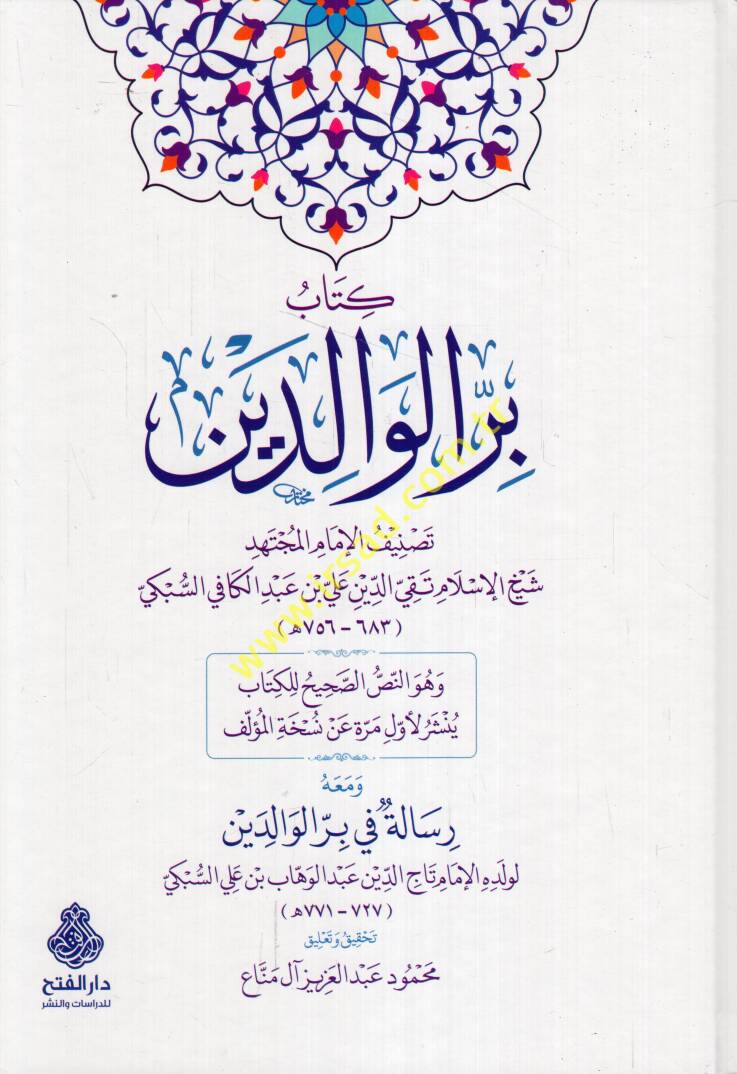 كِتَابُ
بِرّ الوَالِدَيْن
تَصْنِيْفُ الإِمَامِ المُجْتَهِدِ
شَيْخِ الإِسْلَامِ تَقِيِّ الدِّيْنِ عَلِيِّ بْنِ عَبْدِ الكَافِي السُّبْكِيّ
(٦٨٣ - ٧٥٦هـ)
وَهُوَ النَّصُّ الصَّحِيْحُ لِلْكِتَابِ
يُنْشَرُ لأَوَّلِ مَرَّةٍ عَنْ نُسْخَةِ المُؤَلِّف
وَمَعَهُ
رِسَالَةٌ فِي بِرِّ الوَالِدَيْن
لولدِهِ الإِمَامِ تَاجِ الدِّيْنِ عَبْدِ الوَهَّابِ بْنِ عَلِي السُّبْكِيّ
(٧٢٧ - ٧٧١هـ)
تَحْقِيْقُ وَتَعْلِيْق
مَحْمُود عَبْد العَزِيز آل مَنَّاع
دار الفتح
للدراسات والنشر
www.irsad.com.tr